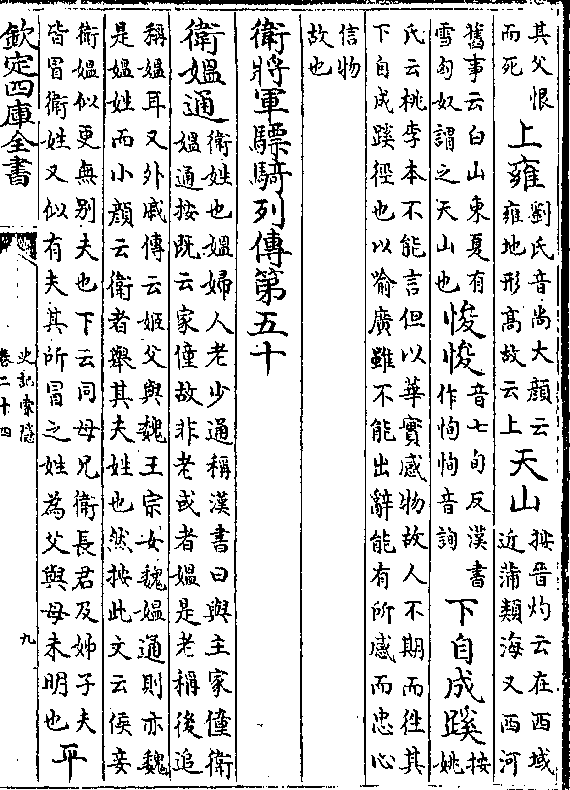 其父恨
而死
上雍
劉氏音尚大顔云
雍地形髙故云上
天山
按晉灼云在西域
近蒲類海又西河
舊事云白山東夏有
雪匈奴謂之天山也
悛悛
音七旬反漢書
作恂恂音詢
下自成蹊
按
姚
氏云桃李本不能言但以華實感物故人不期而徃其
下自成蹊徑也以喻廣雖不能出辭能有所感而忠心
信物
故也
衛將軍驃騎列傳第五十
衛媼通
衛姓也媼婦人老少通稱漢書曰與主家僮衛
媼通按既云家僮故非老或者媼是老稱後追
稱媼耳又外戚傳云姬父與魏王宗女魏媼通則亦魏
是媼姓而小顔云衛者舉其夫姓也然按此文云侯妾
衛媼似更無别夫也下云同母兄衛長君及姊子夫
皆冒衛姓又似有夫其所冒之姓為父與母未明也
平
欽定四庫全書
史記索隱
卷二十四
九